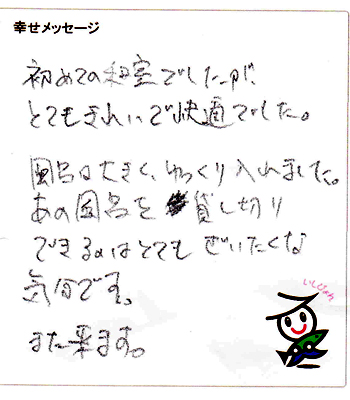 幸せメッセージ
初めての和室でしたが、
とてもきれいで快適でした。
風呂は大きく、ゆっくり入れました。
あの風呂を貸し切り
できるのはとてもぜいたくな
気分です。
また来ます。
いしじゃん